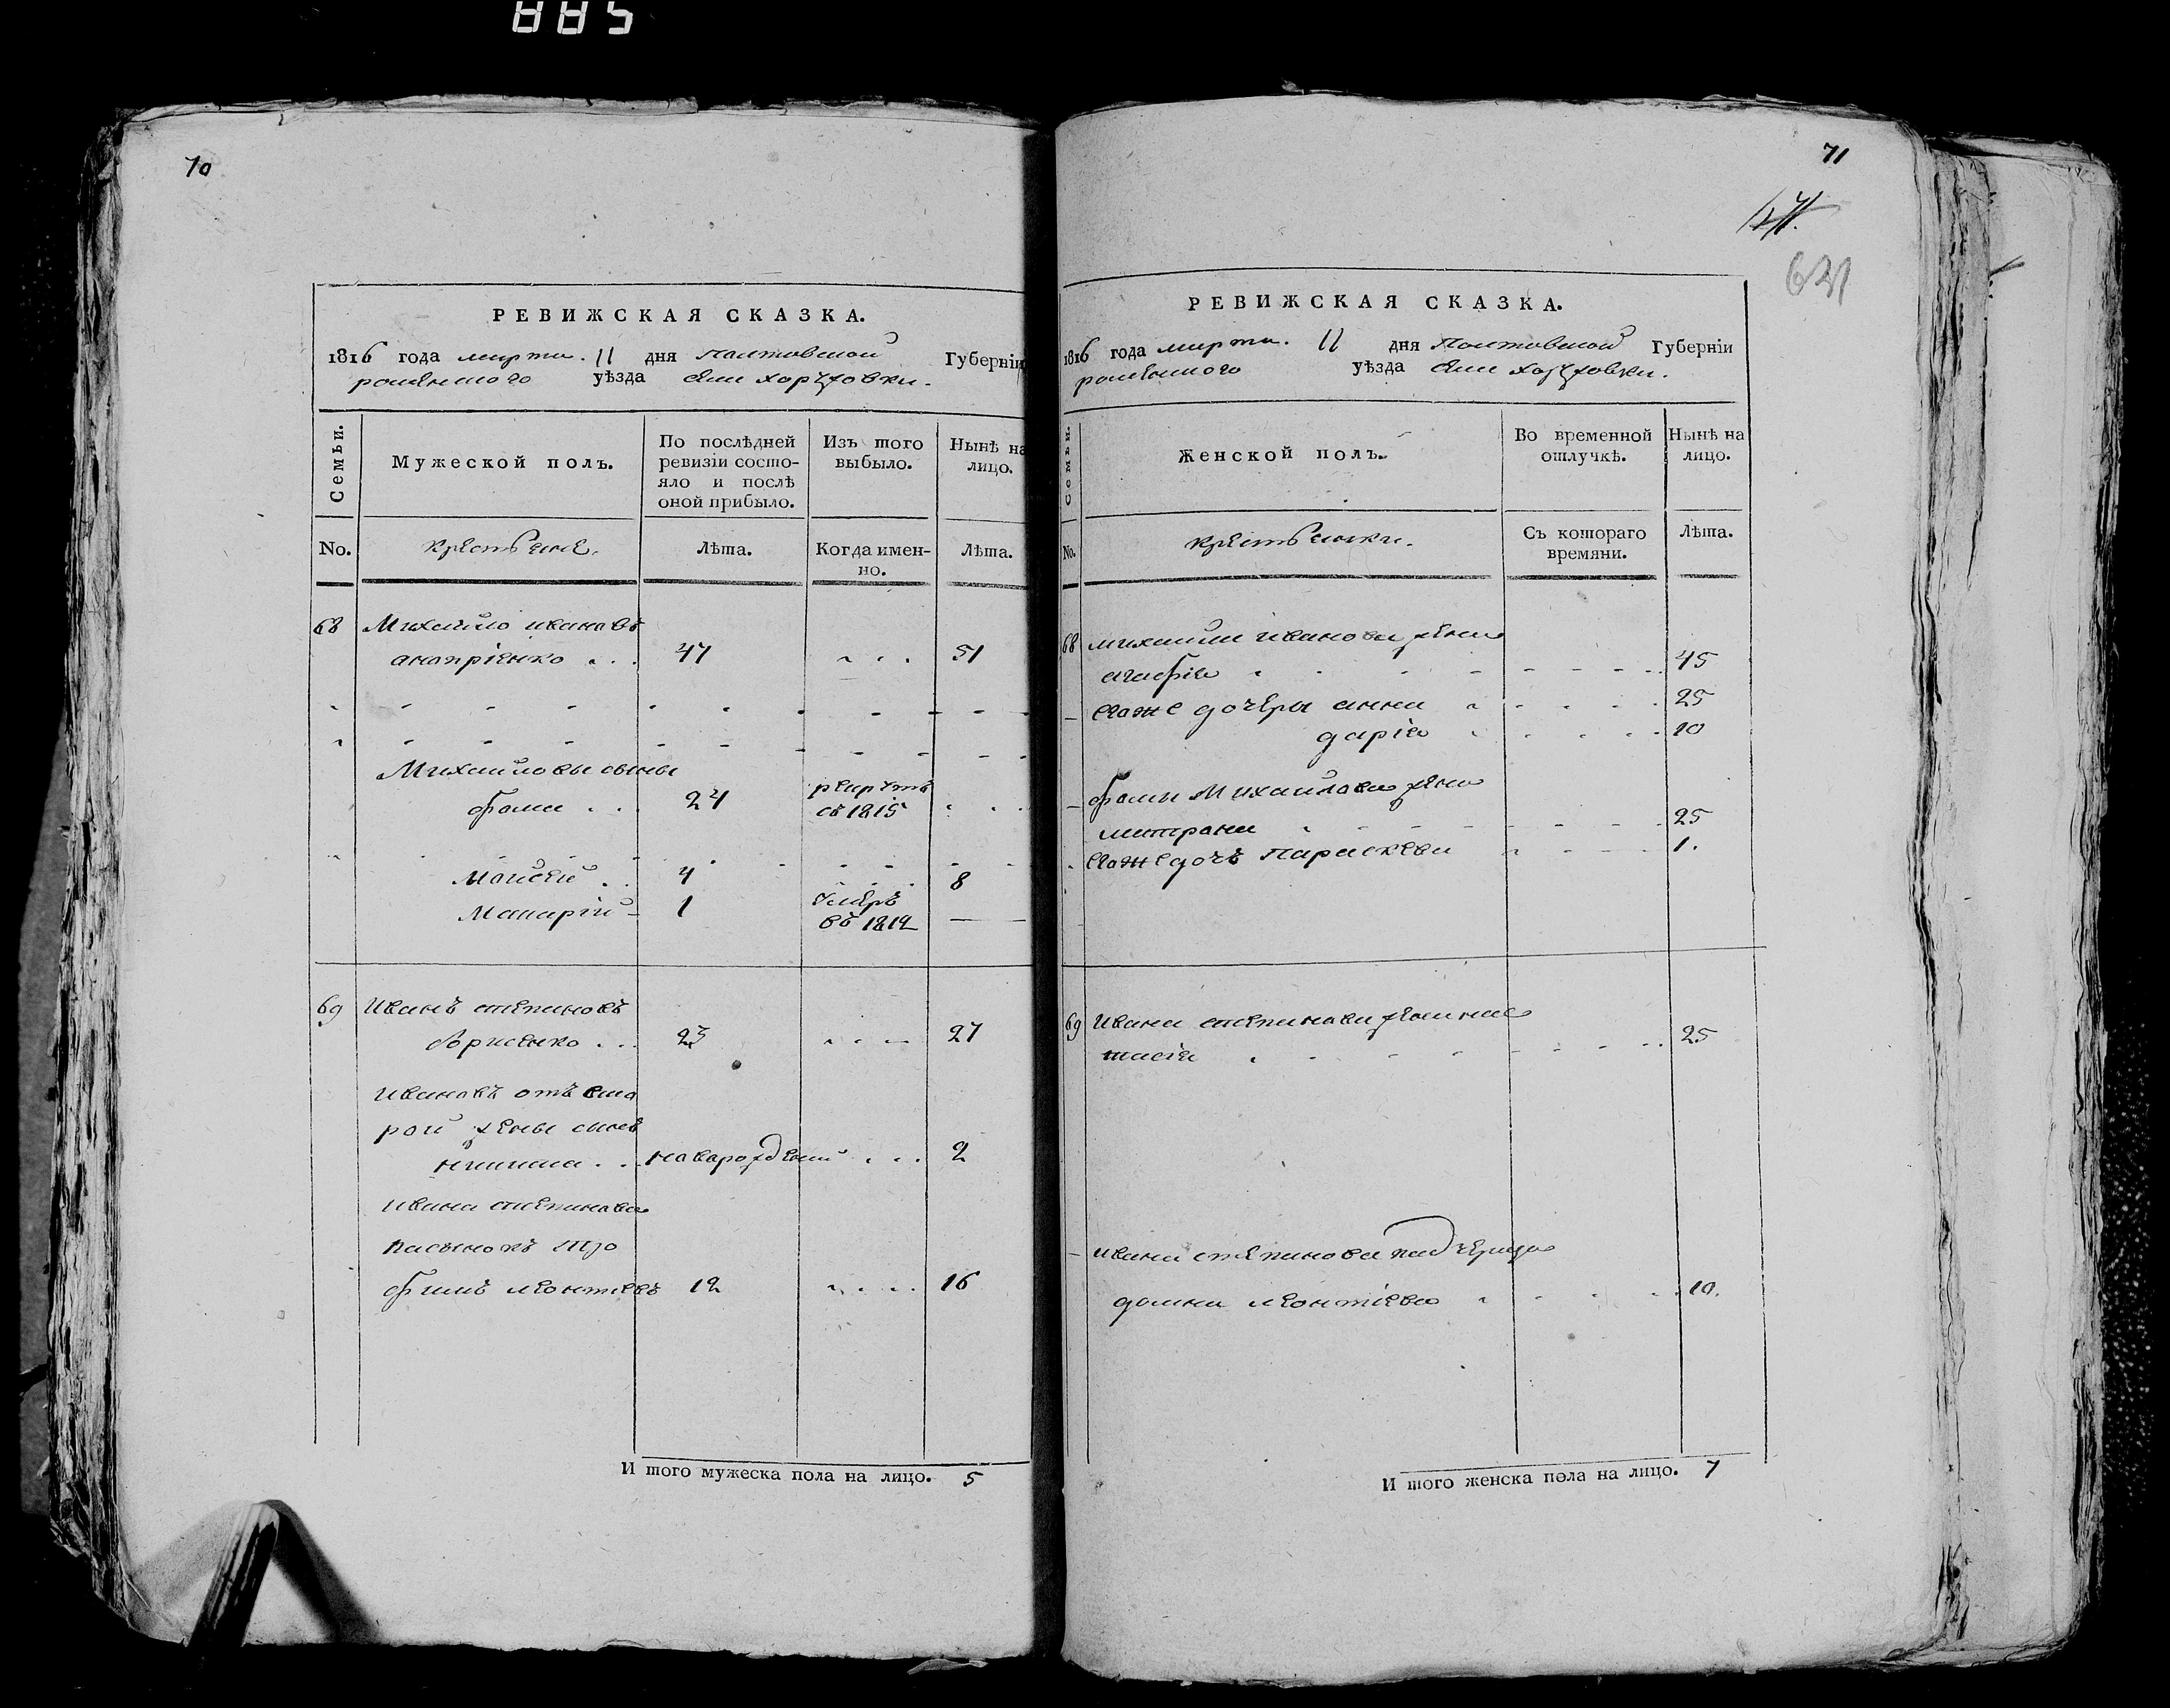 885
70
РЕВИЖСКАЯ СКАЗКА.
1816 года марта 11 дня Полтавской Губерніи
роменского уѣзда села
Семьи.
Мужеской полъ.
По послѣдней ревизіи состо-
яло и послѣ
оной прибыло.
Изъ того
выбыло.
Нынѣ на
лицо.
No.
крестьяне.
Лѣта.
Когда имен-
но.
Лѣта.
68 Михайло ивановъ
анопріенко 47 51
Михайловы сыны
фома 24 рекрутъ
въ 1815
Мойсей 4 8
Макарій 1 умеръ
въ 1812
69 Иванъ степановъ
борисенко 23 27
Ивановъ отъ вто
рой жены сынъ
никита новорожденый 2
ивана степанова
пасынокъ тро
фимъ леонтіевъ 12 16
И того мужеска пола на лицо. 5
71
631
РЕВИЖСКАЯ СКАЗКА.
1816 года марта. 11 дня Полтавской Губерніи
роменского уѣзда села
Семьи.
Женской полъ.
Во временной
отлучкѣ.
Нынѣ на
лицо.
No.
крестьянки.
Съ котораго
времяни.
Лѣта.
68 михайла иванова жена
агафія 45
егоже дочеры анна 25
дарія 10
фомы Михайлова жена
митрана 25
егоже дочъ параскева 1.
69 Ивана степанова жена нас
тасія 25
ивана степанова падчерица
домна леонтіева 10.
И того женска пола на лицо. 7